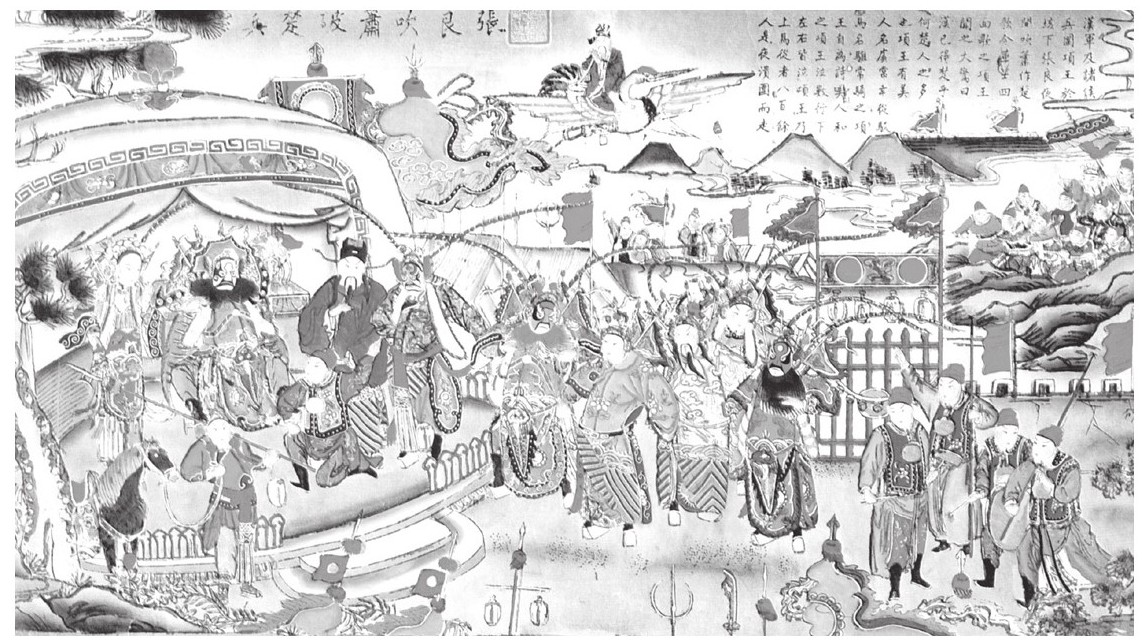 張良吹蕭破楚兵
漢軍及諸侯
兵圍項王於
垓下張良使
間吹簫作楚
歌令軍士四
面歌之項王
聞之大驚曰
漢已得楚乎
何楚人之多
也項王有美
人名虞常幸從駿
馬名騅常騎之項
王自為詩人和
之項王泣數行下
左右皆泣項王乃
上馬從者八百餘
人是夜潰圍而走